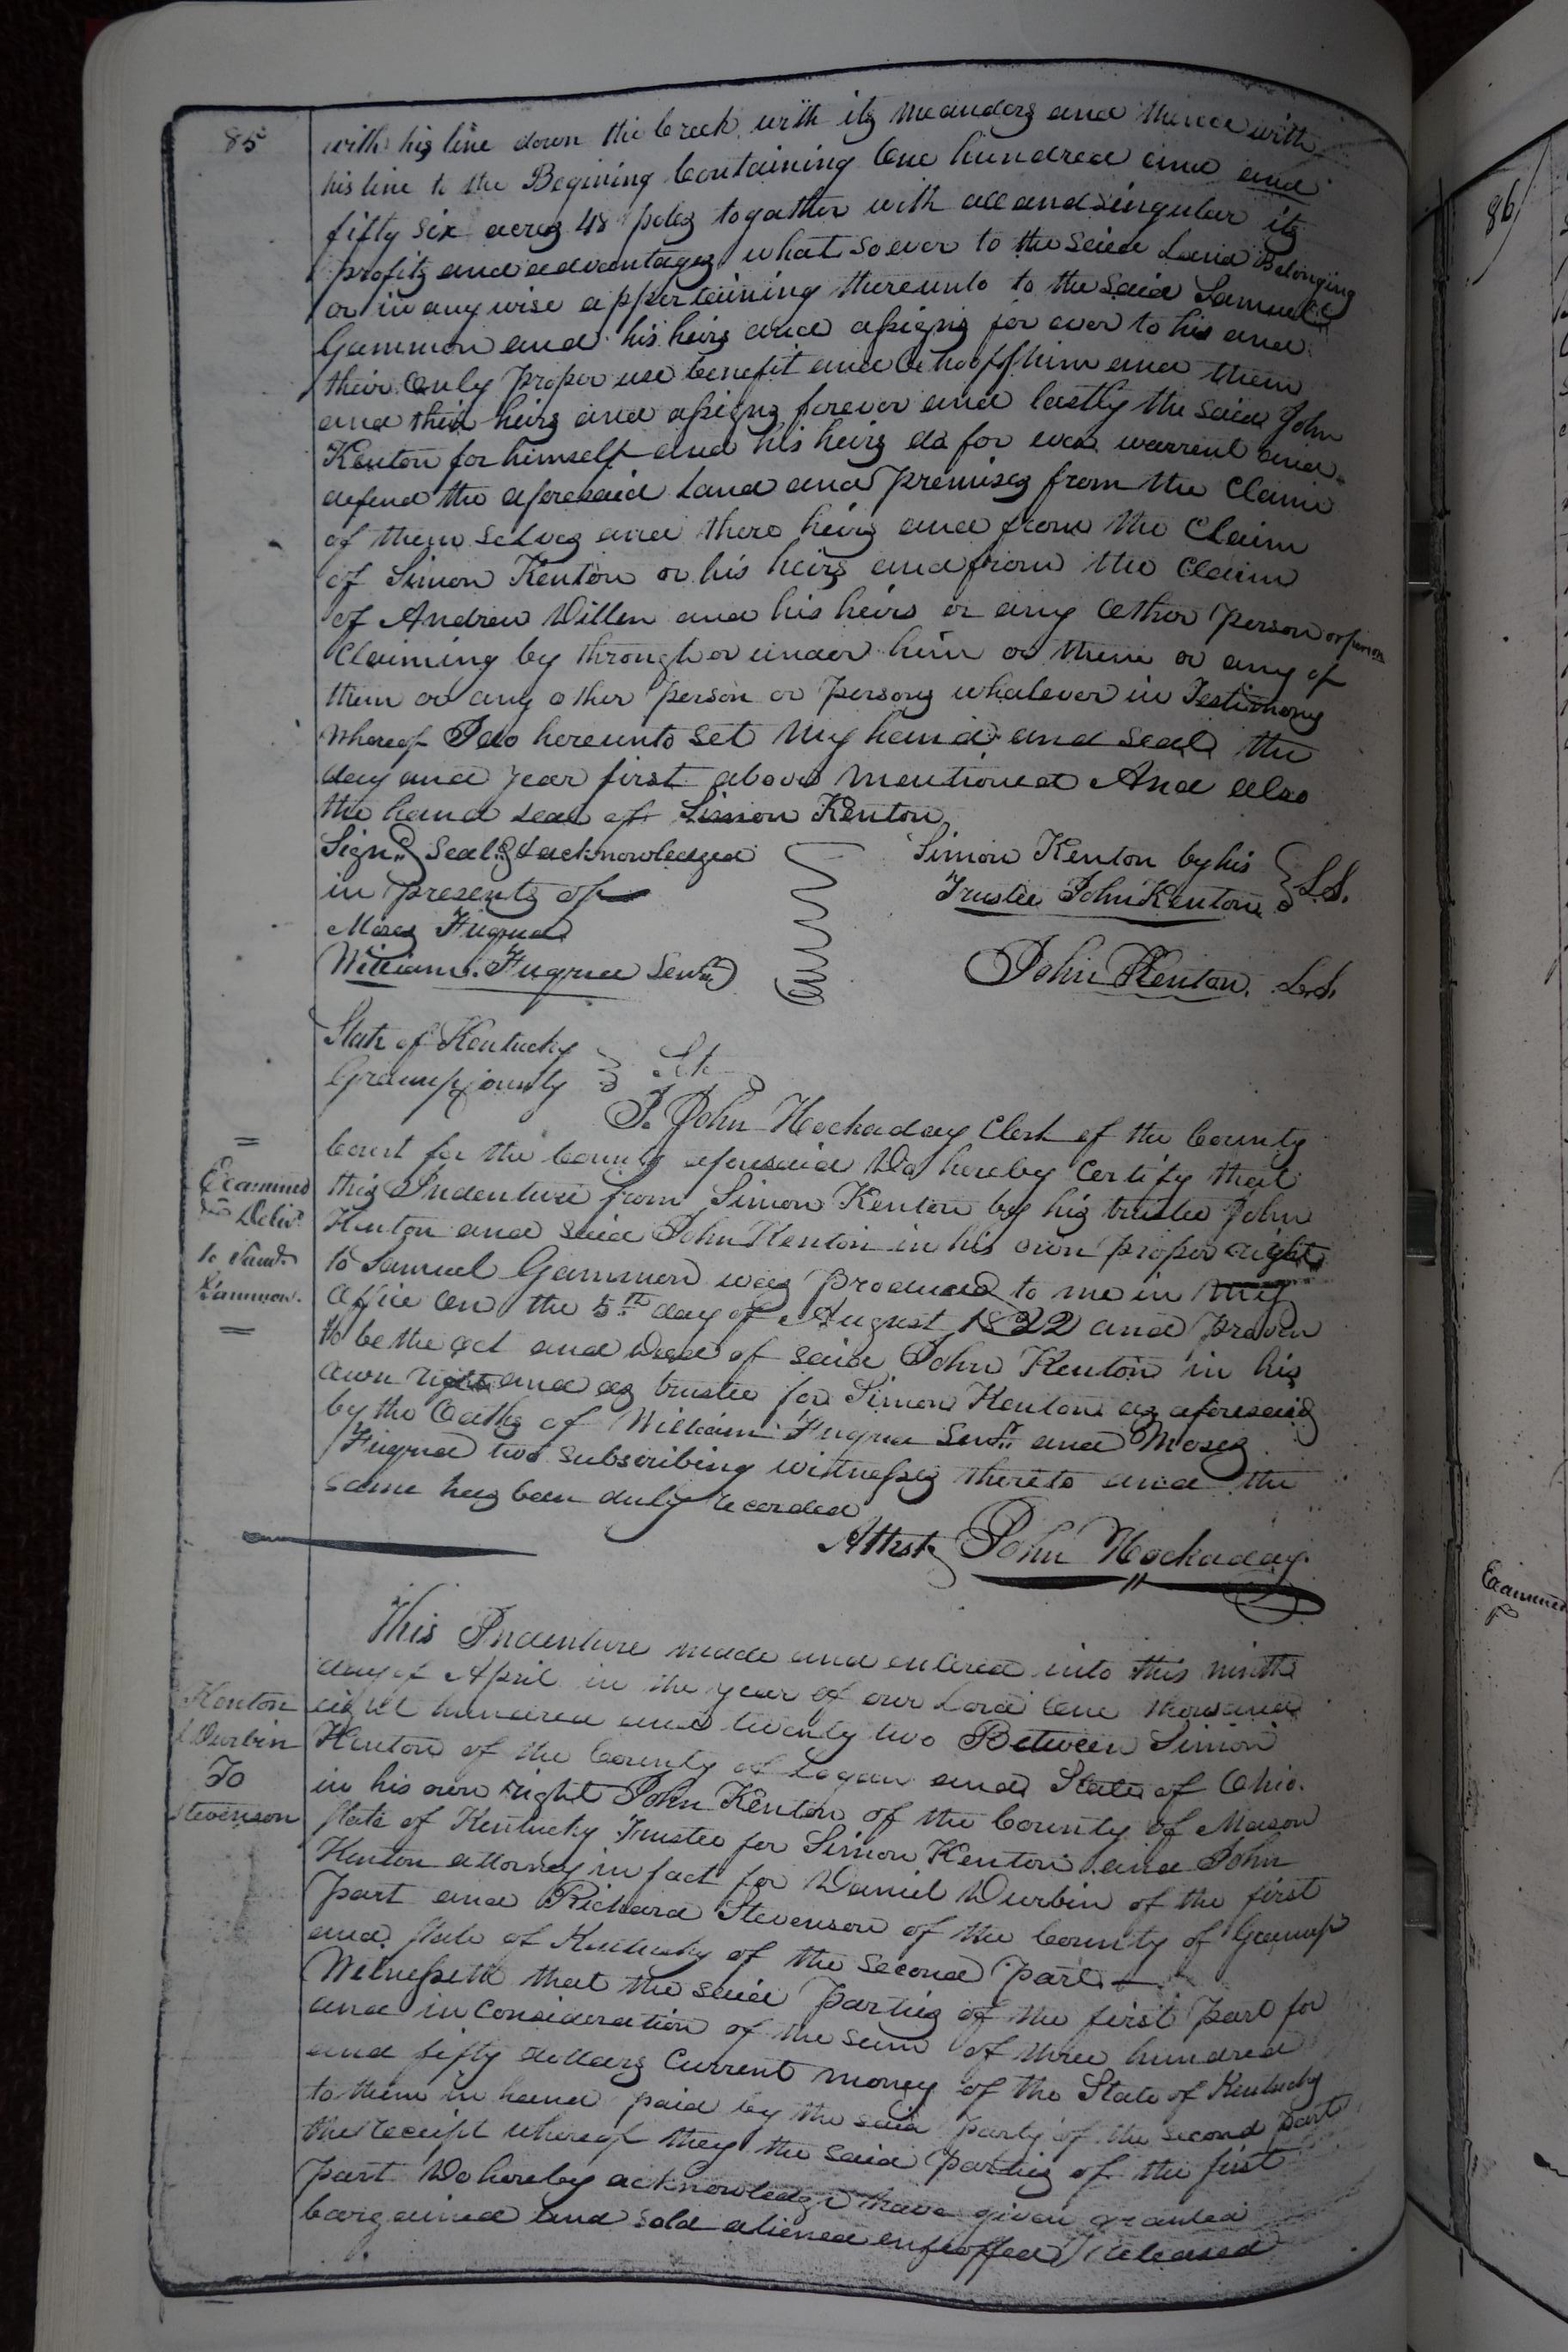 85
with his line down the Creek with its meanders and thence with
his line to the Begining Containing One hundred and and
fifty six acres 48 poles togather with all and singular its
profits and advantages what so ever to the said Land Belonging
or in any wise appertaining thereunto to the said Samuel
Gammon and his heirs and assigns for ever to his and
their Only proper use benefit and behooff him and them
and their heirs and assigns forever and lastly the said John
Kenton for himself and his heirs do for ever warrent and
defend the aforesaid Land and Premises from the Claim
of them selves and there heirs and from the Claim
of Simon Kenton or his heirs and from the Claim
of Andrew Willen and his heirs or any Other person or persons
Claiming by through or under him or them or any of
them or any other person or persons whatever in Testimony
whereof I do hereunto set my hand and seal the
day and year first above mentioned And also
the hand seal of Simon Kenton
Sign.d Seal.d & acknowledged
in presents of
Moses Fuqua
William Fuqua Senr
Simon Kenton by his
Trustee John Kenton L.S.
John Kenton. L.S.
State of Kentucky
Greenup County Sct.
I. John Hockaday Clerk of the County
Court for the County aforesaid Do hereby Certify that
this Indenture from Simon Kenton by his trustee John
Kenton and said John Kenton in his own proper right
to Samuel Gammon was produced to me in my
office on the 5th day of August 1822 and proven
to be the act and deed of said John Kenton in his
own right and as trustee for Simon Kenton as aforesaid
by the Oaths of William Fuqua Senr and Moses
Fuqua two subscribing witnesses thereto and the
same has been duly recorded
Attest John Hockaday
Examined
Deliv.d
to Saml.
Gammon.
This Indenture made and entered into this ninth
day of April in the year of our Lord One thousand
eight hundred and twenty two Between Simon
Kenton of the County of Logan and State of Ohio.
in his own right John Kenton of the County of Mason
State of Kentucky Trustee for Simon Kenton and John
Kenton attorney in fact for Daniel Durbin of the first
part and Richard Stevenson of the County of Greenup
and State of Kentucky of the Second part
Witnesseth that the said Parties of the first Part for
and in Consideration of the sum of three hundred
and fifty dollars Current money of the State of Kentucky
to them in hand paid by the said party of the second part
the receipt whereof they the said parties of the first
part Do hereby acknowledge have given granted
bargained and sold aliened enfeoffed released
Kenton
& Durbin
To
Stevenson
86
Examined